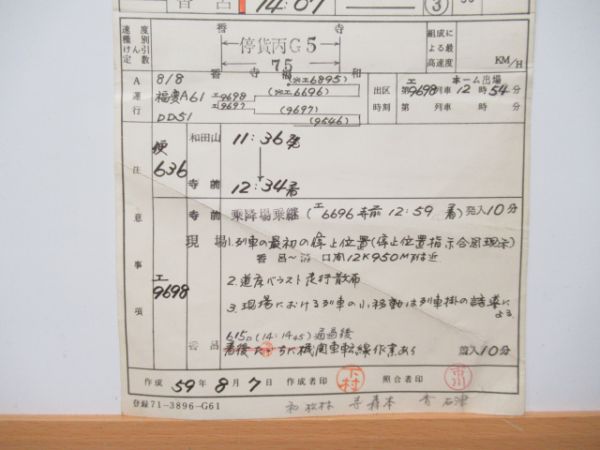 14:07
③
速度種別
けん引定数
香 寺
停貨丙G5
75
香 寺 溝 和
組成による最高速度
KM/H
A運行
818
福変A61
DD51
(6895)
エ9698 (6696)
エ9697 (9697)
(9646)
出区時刻
本ーム出場
エ
第9698列車 12時54分
第 列車 時 分
注意事項
便
636
和田山 11:36発
寺前 12:34着
寺前 乗降場乗継 (エ6696 寺前 12:59 着) 発入10分
エ
9698
現場 1.列車の最初の停止位置(停止位置指示合図現示)
香呂~溝口間12K950M付近
2.道床バラスト走行散布
3.現場における列車の小移動は列車掛の請求による
615D(14:14 45)通過後
香呂 着後ただちに機関車転線作業あり 着入10分
作成 59年 8月 7日 作成者印 下村 照合者印 市川
登録71-3896-G61
和 松林 寺 森本 香 石津